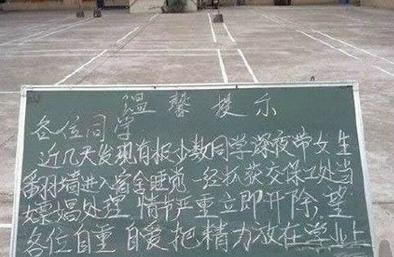 温馨提示
各位同学
近几天发现有极少数同学深夜带女生
翻墙进入宿舍睡觉一经抓获交保卫处当
嫖娼处理，情节严重立即开除，望
各位自重 自爱把精力放在学业上